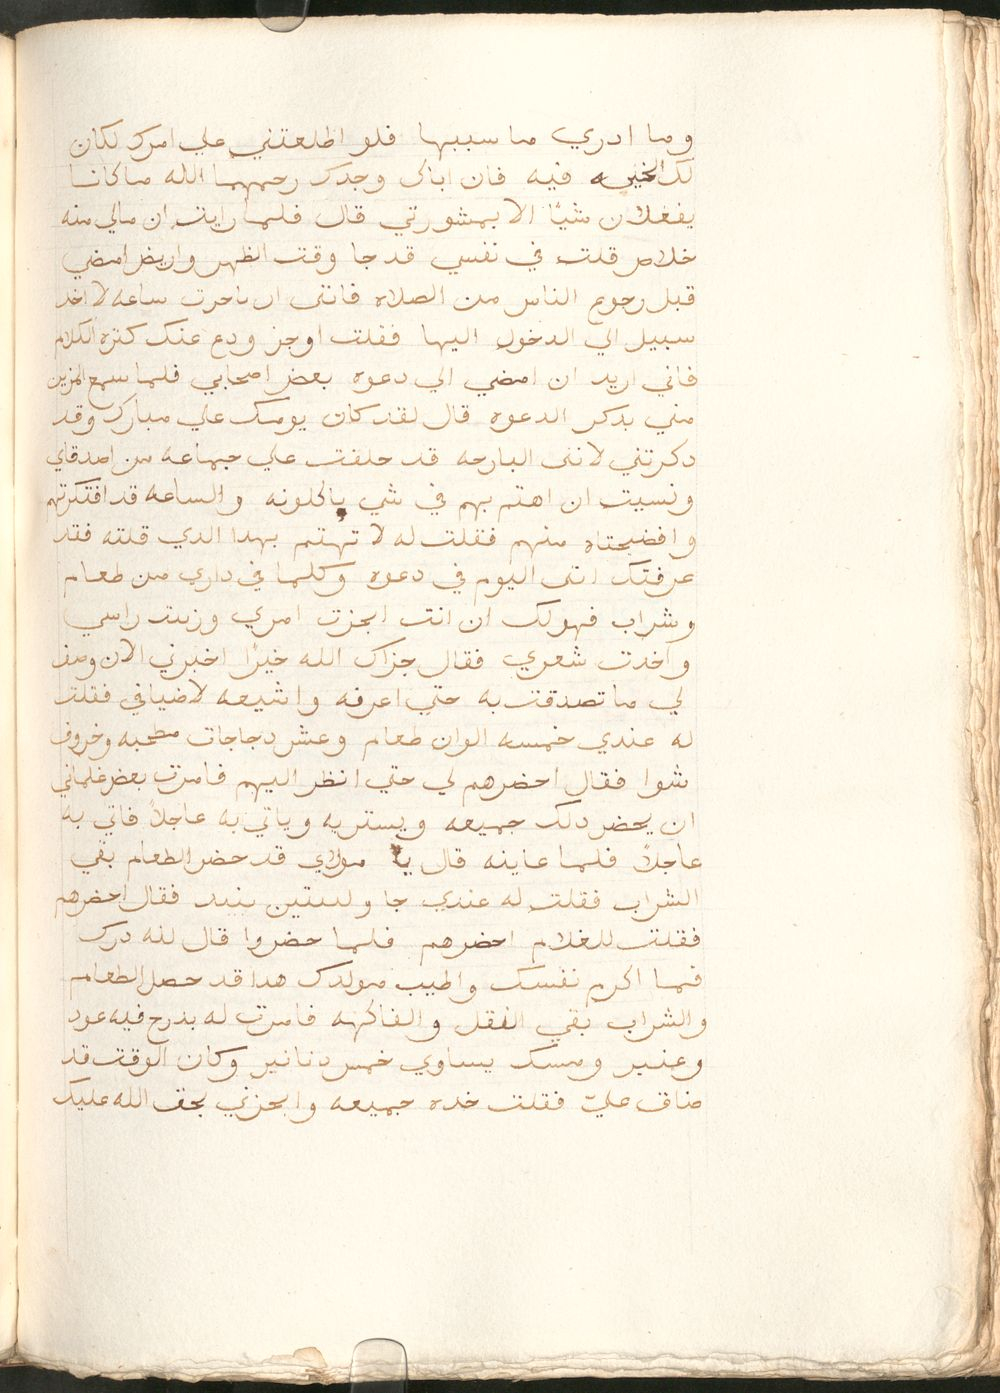 وما ادري ما سببها فلو اطلعتني علي امرك لكان
لك الخيره فيه فان اباك وجدك رحمهما الله ما كانا
يفعلان شيًا الا بمشورتي قال فلما رايت ان مالي منه
خلاص قلت في نفسي قد جا وقت الظهر واريد امضي
قبل رجوع الناس من الصلاه فانني ان تاخرت ساعه لا اخد
سبيل الي الدخول اليها فقلت اوجز ودع عنك كتره الكلام
فاني اريد ان امضي الي دعوه بعض اصحابي فلما سمع المزين
مني بدكر الدعوه قال لقد كان يومك علي مبارك وقد
دكرتني لانني البارحه قد حلفت علي جماعه من اصدقاي
ونسيت ان اهتم بهم في شي ياكلونه والساعه قد افتكرتهم
وافضيحتاه منهم فقلت له لا تهتم بهدا الدي قلته فقد
عرفتك انني اليوم في دعوه وكلما في داري من طعام
وشراب فهو لك ان انت انجزت امري وزينت راسي
واخدت شعري فقال جزاك الله خيرًا اخبرني الان وصف
لي ما تصدقت به حتي اعرفه واشيعه لاضيافي فقلت
له عندي خمسه الوان طعام وعشر دجاجات وخروف
شوا فقال احضرهم لي حتي انظر اليهم فامرت بعض غلماني
ان يحضر دلك جميعه ويستريه وياتي به عاجلاً فاتي به
عاجلاً فلما عاينه قال يا مولاي قد حضر الطعام بقي
الشراب فقلت له عندي نبيد فقال احضرهم
فقلت للغلام احضرهم فلما حضروا قال لله درك
فما اكرم نفسك واطيب مولدك هدا قد حصل الطعام
والشراب بقي الفقل والفاكهه فامرت له بدرج فيه عود
وعنبر ومسك يساوي خمس دنانير وكان الوقت قد
ضاق عليّ فقلت خده جميعه وانجزني بحق الله عليك